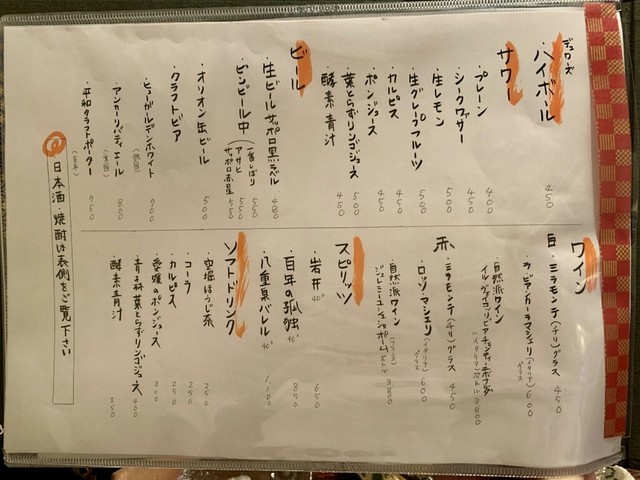 デュワーズ
ハイボール 450
サワー
・プレーン 400
・シークヮサー 450
・生レモン 500
・生グレープフルーツ 500
・カルピス 450
・ポンジュース 450
・葉とらずリンゴジュース 500
・酵素青汁 450
ビール
・生ビール サッポロ黒ラベル 480
・ビンビール中 (一番しぼり 550
アサヒ 550
サッポロ赤星 550
・オリオン缶ビール 500
・クラフトビア
・ヒューガルデンホワイト 700
・アンカーリバティエール 800
(米国)
・平和クラフトポーター 750
(日本)
ワイン
白・ミラモンテ(チリ)グラス 450
(イタリア)グラス 600
・自然派ワイン
(イタリア)ボトル 3,800
赤・ミラモンテ(チリ)グラス 450
・ロッソ マシェリ(イタリア)グラス 600
・自然派ワイン(フランス)
ボトル 3800
スピリッツ
・岩井 40° 650
・百年の孤独 40° 850
・八重泉バレル 40° 1,100
ソフトドリンク
・空堀ほうじ茶 250
・コーラ 250
・カルピス 250
・愛媛のポンジュース 300
・青森葉とらずリンゴジュース 400
・酵素青汁 350
@日本酒・焼酎は表側をご覧下さい